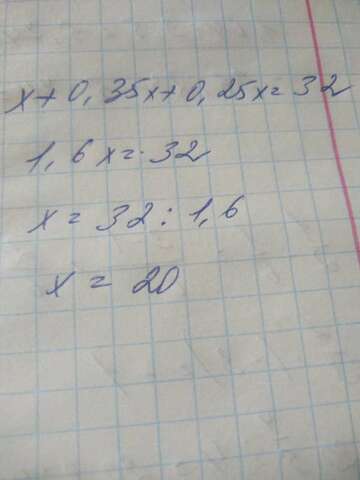 x+0,35x+0,25x=32
1,6x=32
x=32:1,6
x=20